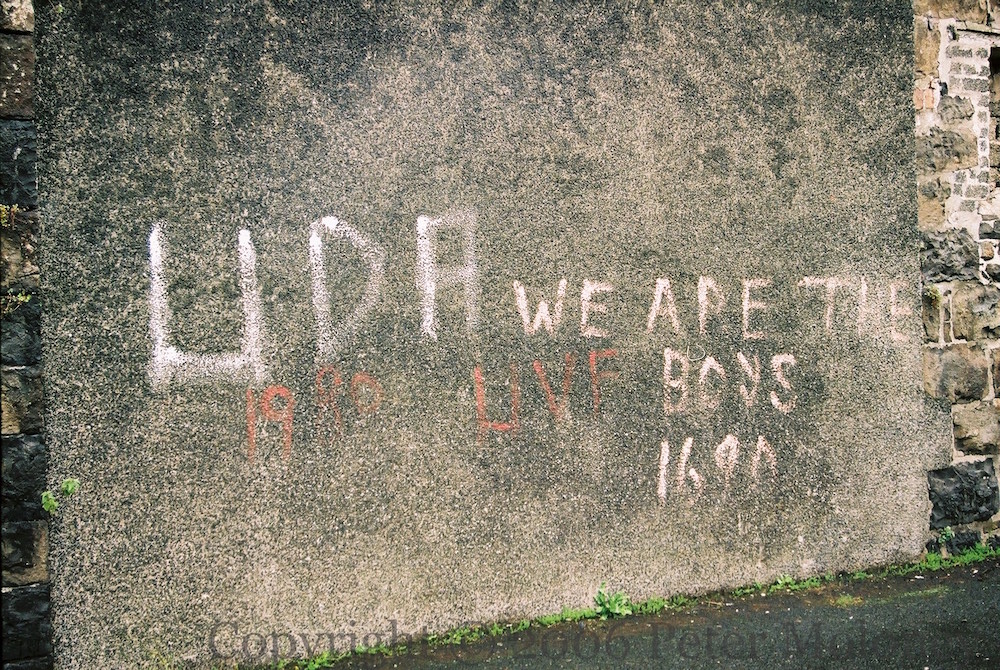 UDA WE ARE THE
1980 UVF BOYS
1690
Copyright © 2006 Peter